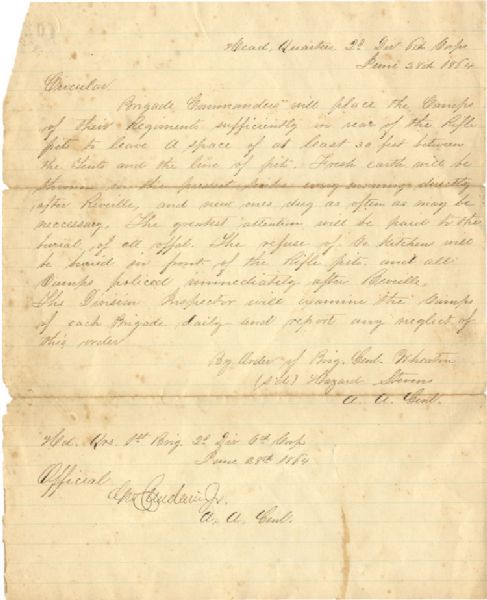 Head Quarters 2d Div 6th Corps
June 28th 1864
Circular
Brigade Commanders will place the Camps
of their Regiments sufficiently in rear of the Rifle
pits to leave a space of at least 30 feet between
the Tents and the line of pits. Fresh earth will be
thrown in the present sinks every morning directly
after Reveille, and new ones dug as often as may be
necessary. The greatest attention will be paid to the
burial of all offal. The refuse of Co kitchens will
be buried in front of the Rifle pits and all
Camps policed immediately after Reveille.
The Division Inspector will examine the Camps
of each Brigade daily and report any neglect of
this order
By Order of Brig. Genl. Wheaton
Hazard Stevens
A. A. Genl.
Hd. Qrs. 1st Brig. 2d Div 6th Corps
June 28th 1864
Official
Jr.
A. A. Genl.